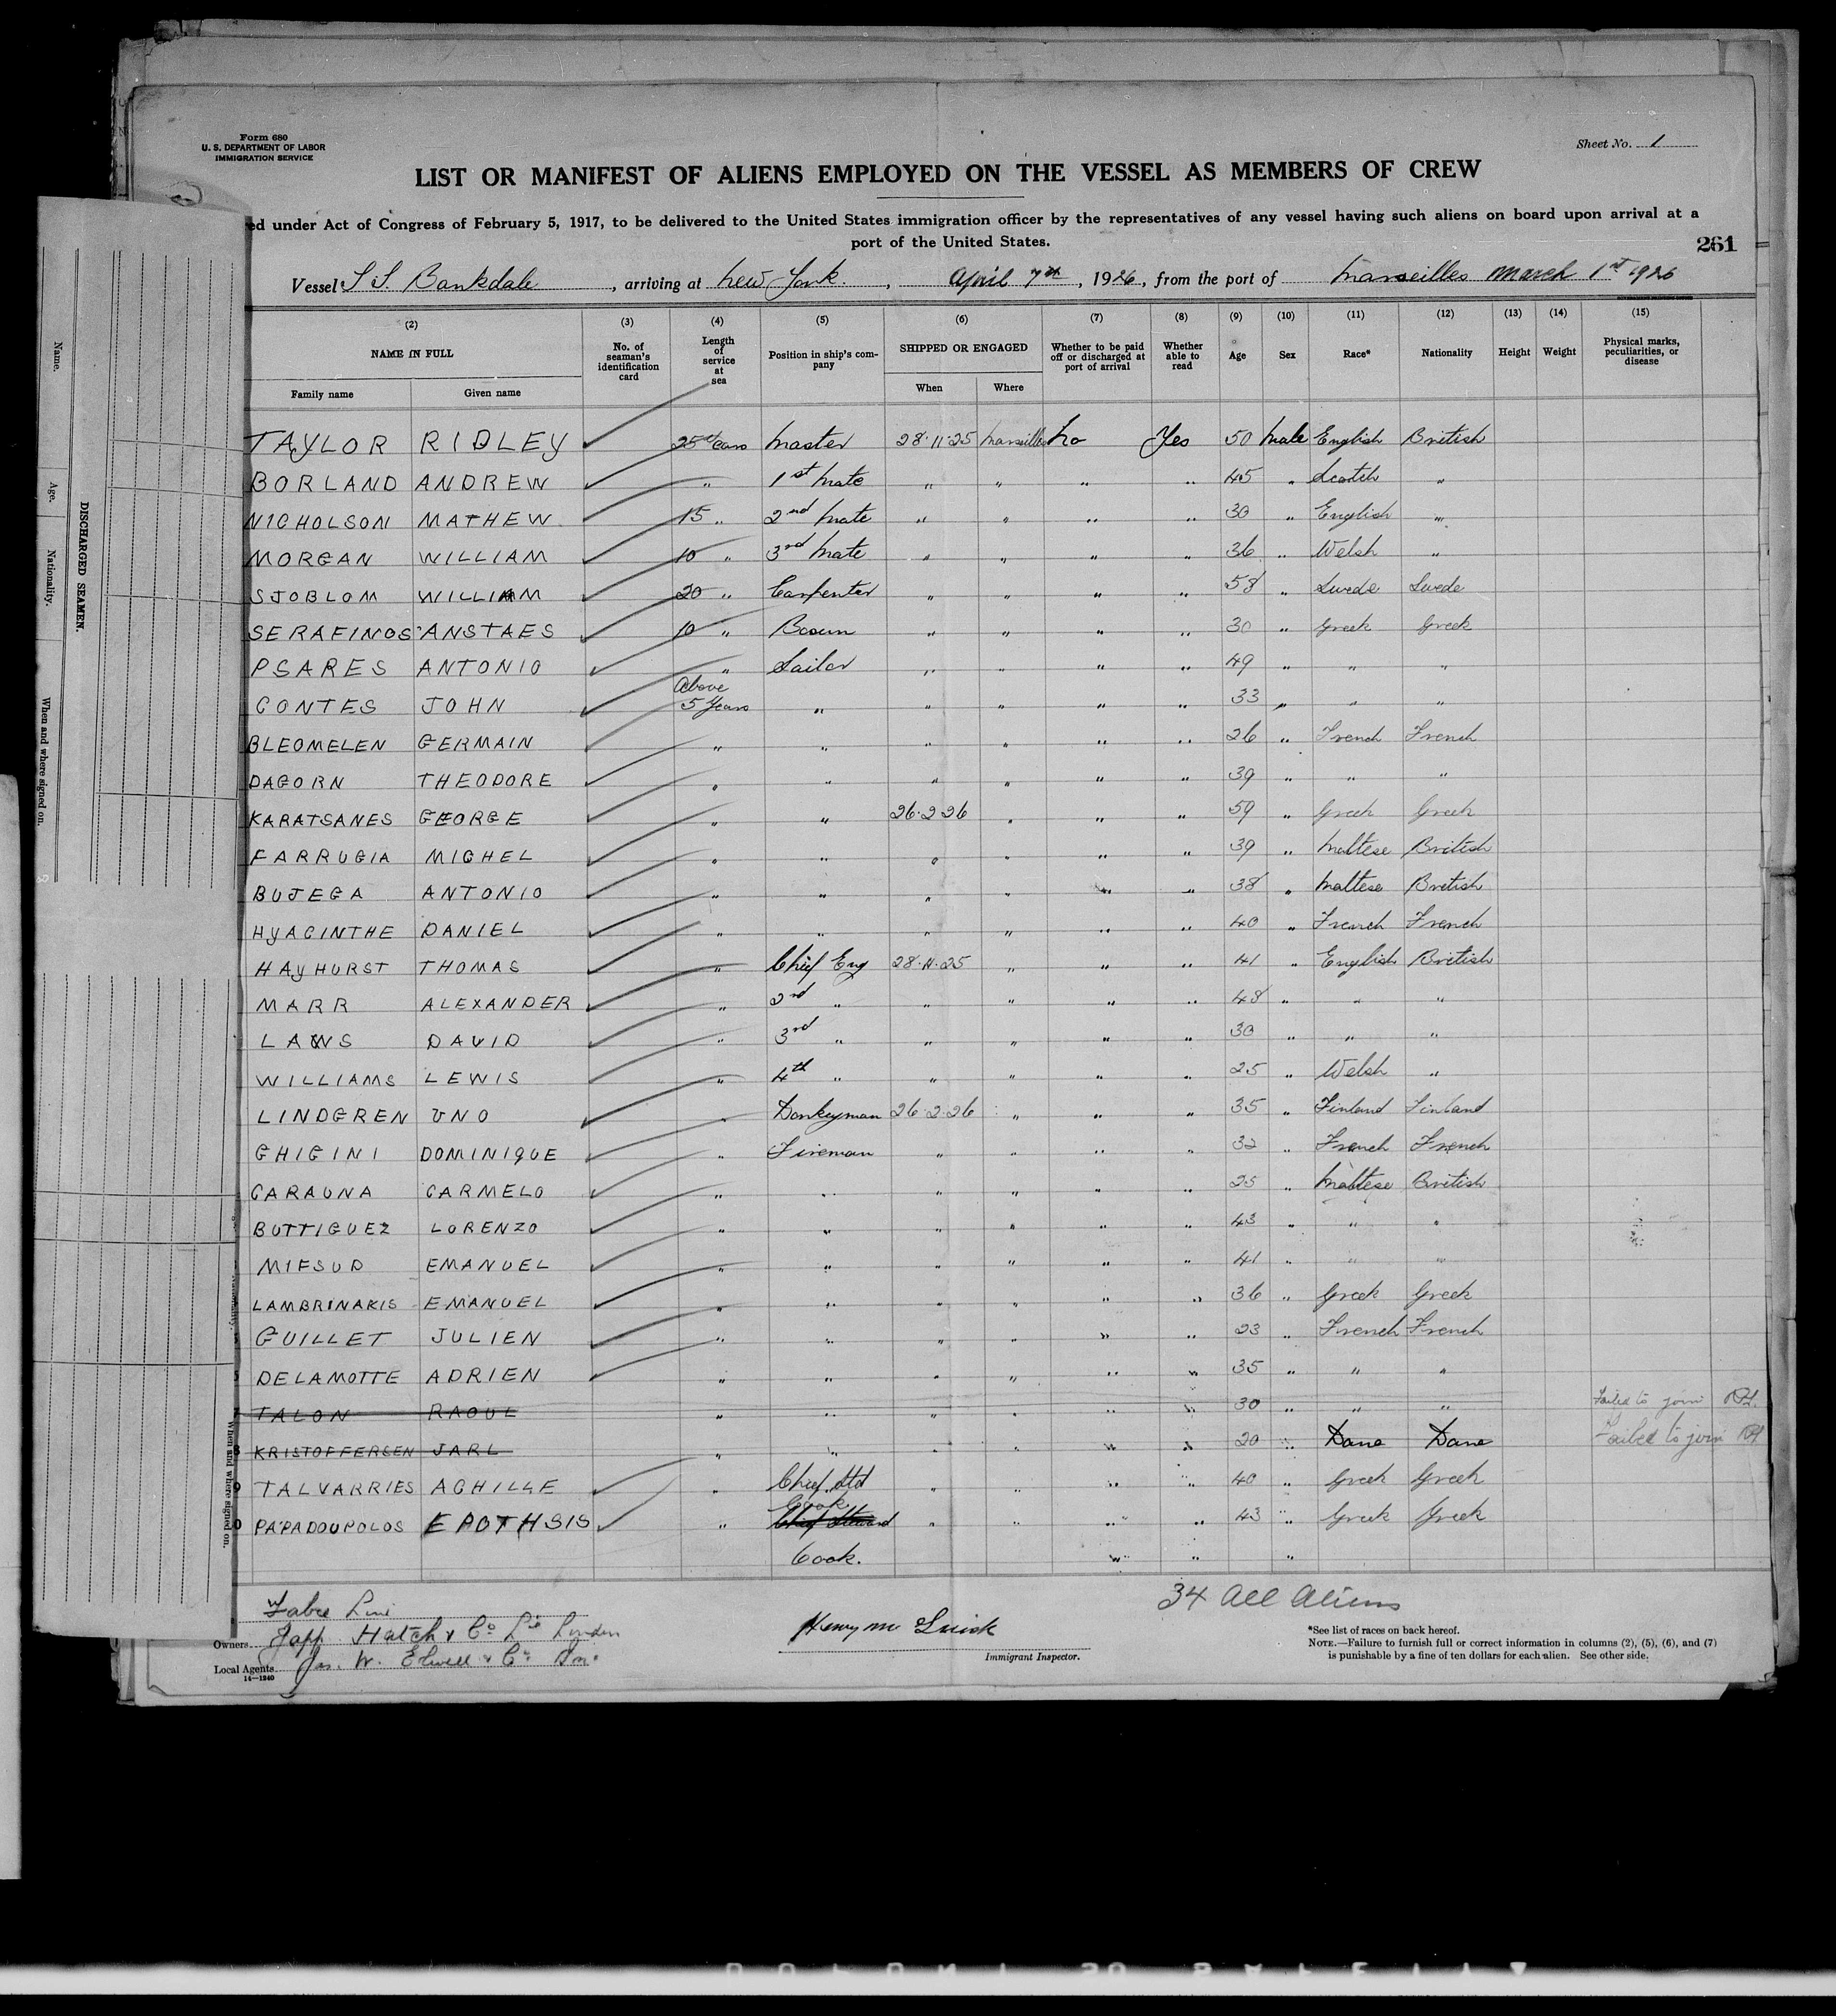 Form 680
U. S. DEPARTMENT OF LABOR
IMMIGRATION SERVICE
Sheet No. 1
LIST OR MANIFEST OF ALIENS EMPLOYED ON THE VESSEL AS MEMBERS OF CREW
ed under Act of Congress of February 5, 1917, to be delivered to the United States immigration officer by the representatives of any vessel having such aliens on board upon arrival at a
port of the United States.
261
Vessel S.S. Bankdale, arriving at New York., April 7th, 1926, from the port of Marseilles March 1st 1926
(2) (3) (4) (5) (6) (7) (8) (9) (10) (11) (12) (13) (14) (15)
NAME IN FULL No. of seaman's identification card Length of service at sea Position in ship's company SHIPPED OR ENGAGED Whether to be paid off or discharged at port of arrival Whether able to read Age Sex Race* Nationality Height Weight Physical marks, peculiarities, or disease
Family name Given name When Where
TAYLOR RIDLEY 25 Years Master 28.11.25 Marseilles No Yes 50 Male English British
BORLAND ANDREW " 1st Mate " " " " 45 " Scotch "
NICHOLSON MATHEW 15 " 2nd Mate " " " " 30 " English "
MORGAN WILLIAM 10 " 3rd Mate " " " " 36 " Welsh "
SJOBLOM WILLIAM 20 " Carpenter " " " " 58 " Swede Swede
SERAFINOS ANSTAES 10 " Bosun " " " " 30 " Greek Greek
PSARES ANTONIO " Sailor " " " " 49 " " "
CONTES JOHN Above 5 Years " " " " " 33 " " "
BLEOMELEN GERMAIN " " " " " " 26 " French French
DAGORN THEODORE " " " " " " 39 " " "
KARATSANES GEORGE " " 26.2.26 " " " 59 " Greek Greek
FARRUGIA MICHEL " " " " " " 39 " Maltese British
BUJEGA ANTONIO " " " " " " 38 " Maltese British
HYACINTHE DANIEL " " " " " " 40 " French French
HAYHURST THOMAS " Chief Eng 28.11.25 " " " 41 " English British
MARR ALEXANDER " 2nd " " " " " 48 " " "
LAWS DAVID " 3rd " " " " " 30 " " "
WILLIAMS LEWIS " 4th " " " " " 25 " Welsh "
LINDGREN UNO " Donkeyman 26.2.26 " " " 35 " Finland Finland
GHIGINI DOMINIQUE " Fireman " " " " 32 " French French
CARAUNA CARMELO " " " " " " 25 " Maltese British
BUTTIGUEZ LORENZO " " " " " " 43 " " "
MIFSUD EMANUEL " " " " " " 41 " " "
LAMBRINAKIS EMANUEL " " " " " " 36 " Greek Greek
GUILLET JULIEN " " " " " " 23 " French French
DELAMOTTE ADRIEN " " " " " " 35 " " "
TALON RAOUL " " " " " " 30 " " " Failed to join
KRISTOFFERSEN JARL " " " " " " 20 " Dane Dane Failed to join
TALVARRIES ACHILLE " Chief Std " " " " 40 " Greek Greek
PAPADOUPOLOS " Cook Chief Steward " " " " 43 " Greek Greek
Cook. " " "
34 All Aliens
Fabre Line
Owners Japp Hatch & Co Ltd London
Local Agents Jas. W. Elwell & Co. Inc.
14—1240
Immigrant Inspector.
*See list of races on back hereof.
NOTE.—Failure to furnish full or correct information in columns (2), (5), (6), and (7)
is punishable by a fine of ten dollars for each alien. See other side.
DISCHARGED SEAMEN.
Name. Age. Nationality. When and where signed on.
When and where signed on.